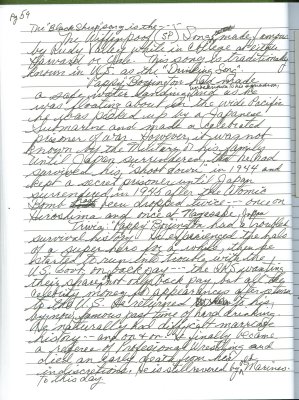 Pg 59
The "Black Sheep" song is the
The Wiffenpoof (SP) Song made famous
by Rudy Valley while in College at either
Harvard or Yale. This song is traditionally
known in U.S. as the "Drinking Song"
Pappy Boyington had made
a safe water landing and as he
was floating about in the wide Pacific
he was picked up by a Japanese
Submarine and made a celebrated
prisoner of war. However, it was not
known by the Military or his family
until Japan surrendered, that he had
survived his "shoot down" in 1944 and
kept a secret prisoner until Japan
surrendered in 1945 after the Atomic
Bomb had been dropped twice -- once on
Hiroshima and once at Nagasaki, Japan
Trivia: Pappy Boyington had a
survival history. He experienced the role
of a super hero for a while, then he
started to run into trouble with the
U.S. Govt. on back pay --- the IRS wanting
their share, not only back pay but all the
Celebrity money in appearances after return
to the U.S. He returned to his
famous past time of hard drinking.
He naturally had difficult marriage
history -- and on & on. He finally became
a referee of Professional Wrestling and
died an early death from his
indiscretions. He is still revered by Marines.
To this day.